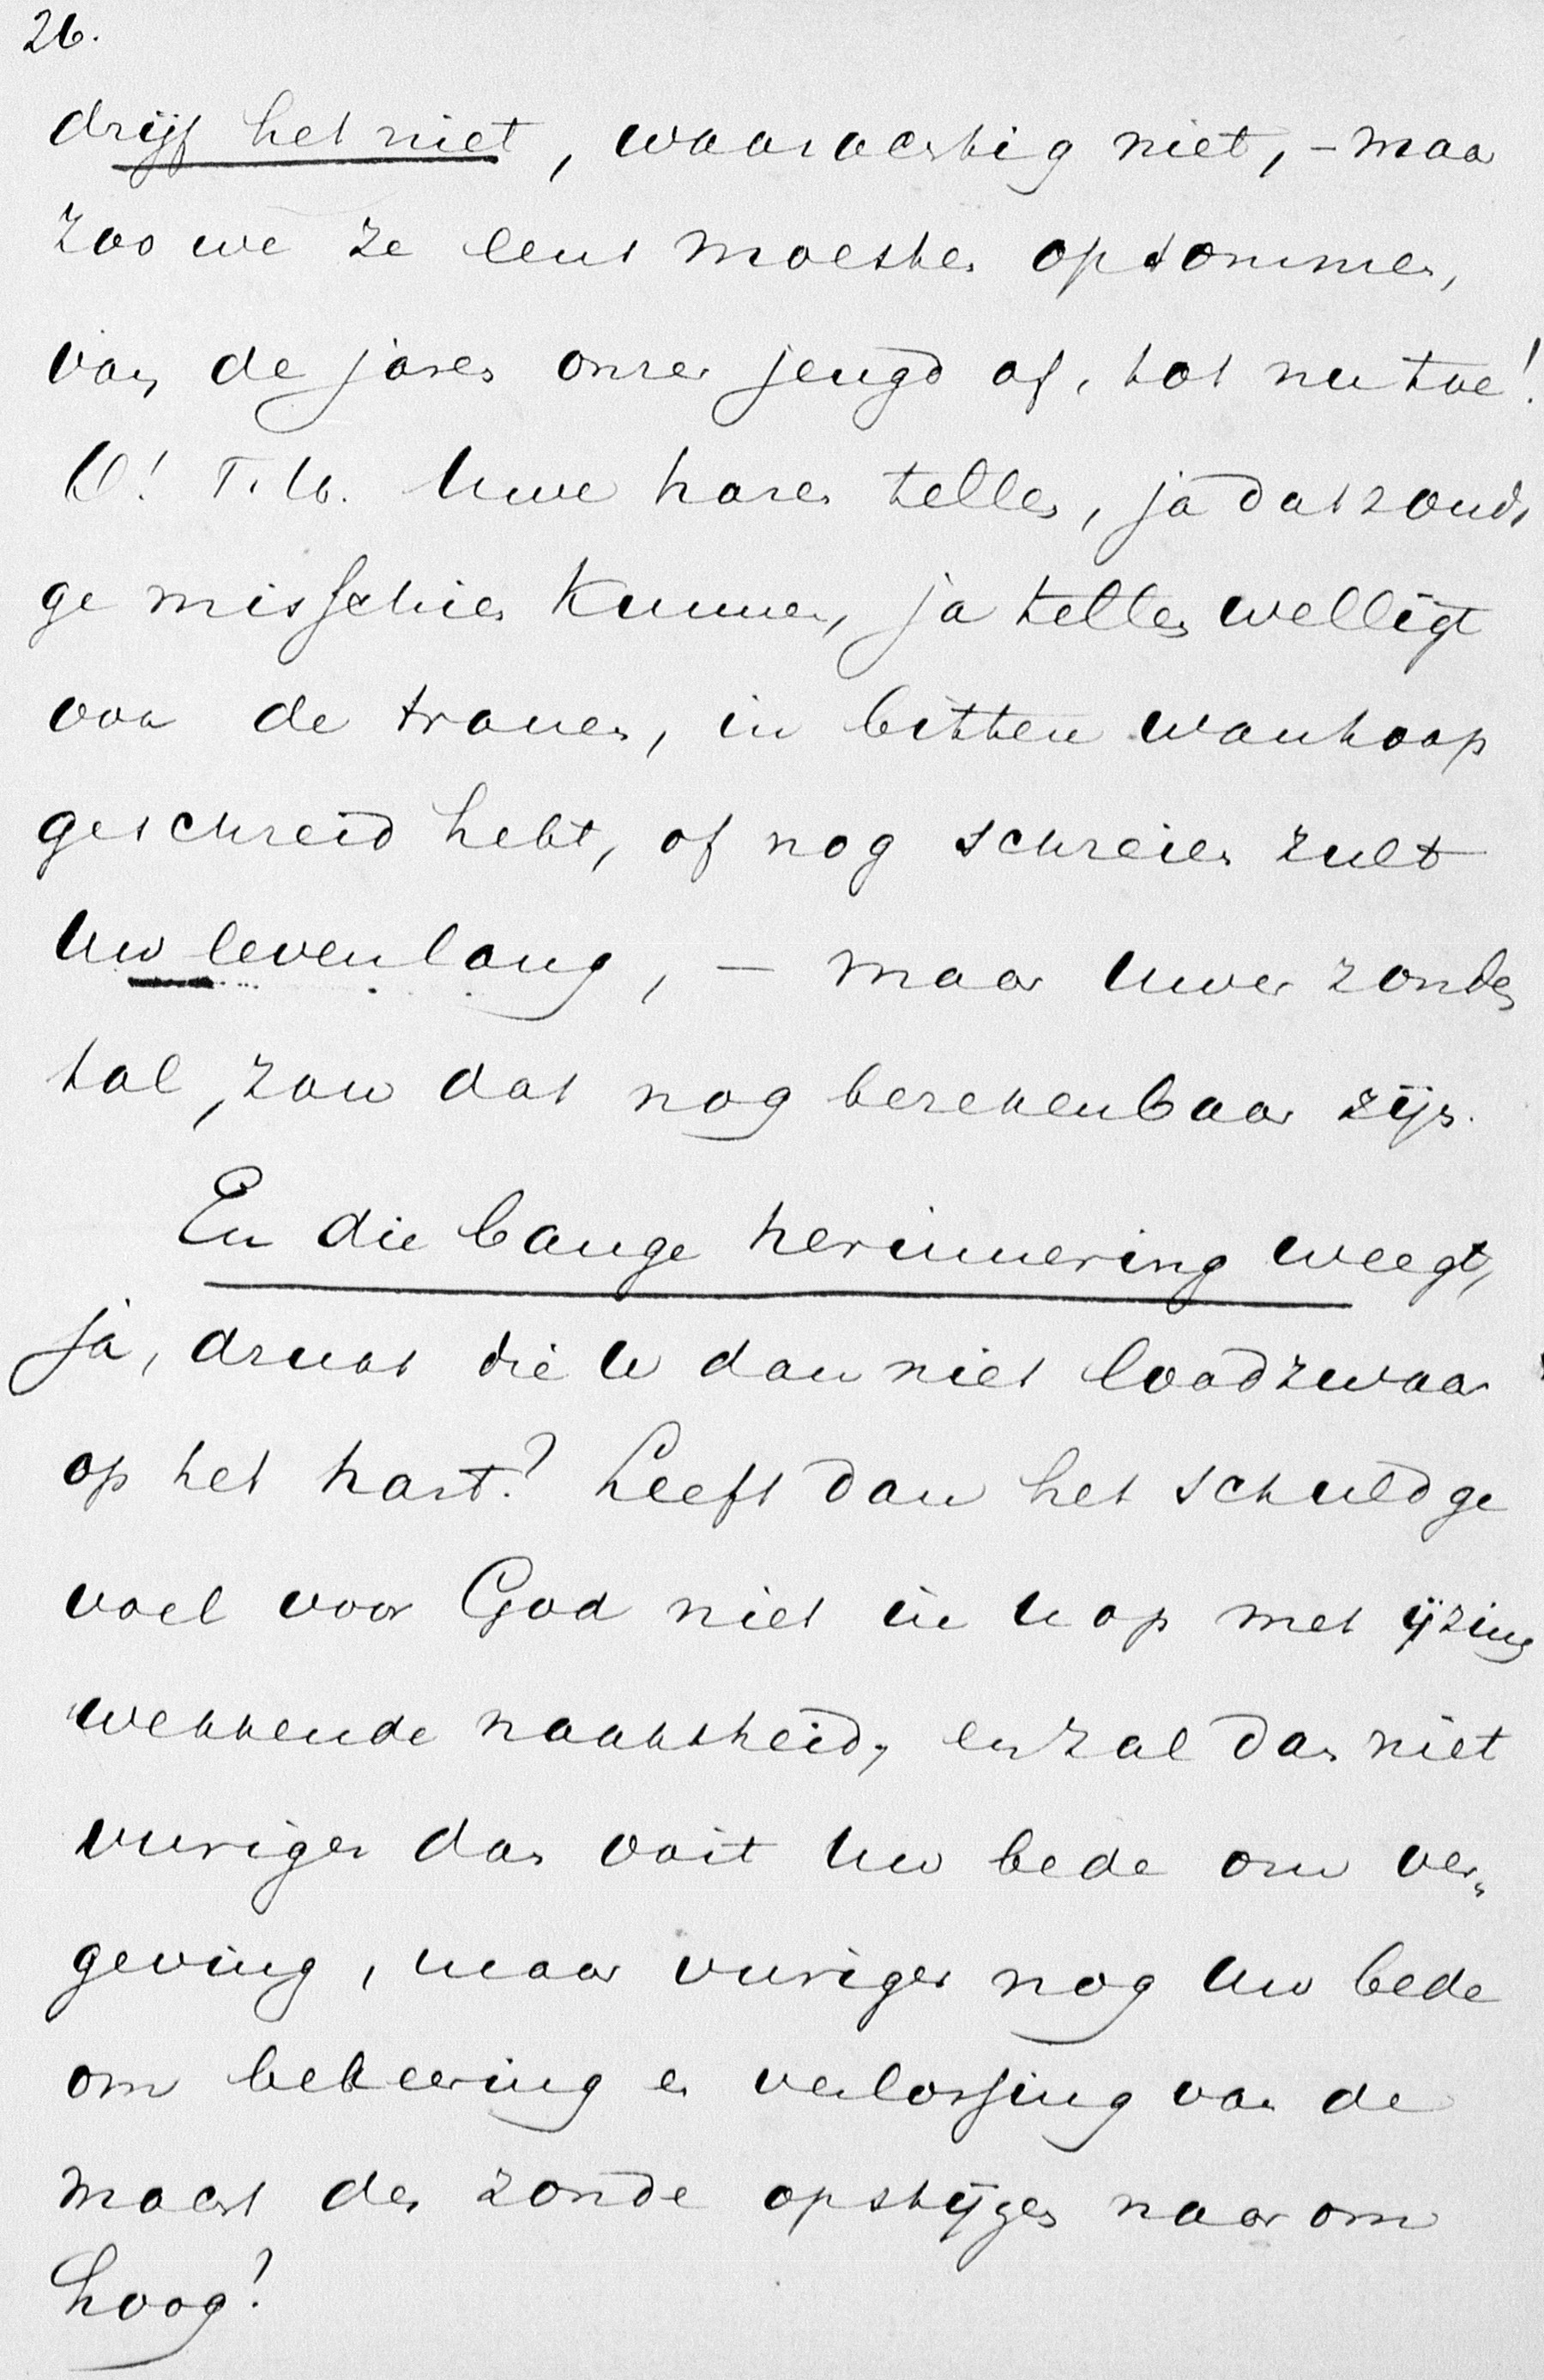 26.
drijf het niet, waarachtig niet, – maar
zoo we ze eens moesten opsommen,
van de jaren onzer jeugd af, tot nu toe!
O! T. U. Uwe haren tellen, ja dat zoudt
ge misschien kunnen, ja tellen welligt
ook de tranen, in bittere wanhoop
geschreid hebt, of nog schreien zult
Uw leven lang, – maar Uwer zonden
tal, zou dat nog berekenbaar zijn.
En die bange herinnering weegt,
ja, drukt die U dan niet loodzwaar
op het hart? Leeft dan het schuldge
voel voor God niet in U op met ijzing
wekkende naaktheid, en zal dan niet
vuriger dan ooit Uw bede om ver„
geving, maar vuriger nog Uw bede
om bekeering en verlossing van de
macht der zonde opstijgen naar om
hoog!